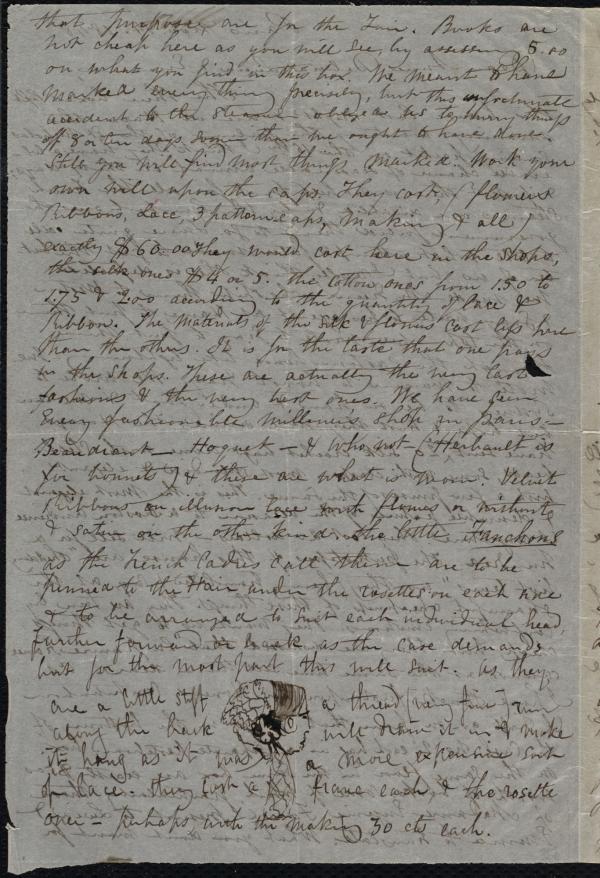 that purpose are for the Fair. Books are
not cheap here as you will see, by assessing 5.00
on what you find in this box. We meant to have
marked everything precisely, but this unfortunate
accident to the Steamer obliges us to hurry things
off 8 or ten days sooner than we ought to have done.
Still you will find most things marked. Work your
own will upon the caps. They cost, (flowers
Ribbons, Lace, 3 pattern caps, making & all)
exactly $60.00 They would cost here in the shops,
the silk ones $4 or 5. the cotton ones from 1.50 to
1.75 & 2.00 according to the quantity of lace &
Ribbon. The materials of the silk & flowers cost less here
than the others. It is for the taste that one pays
in the shops. These are actually the very last
fashions & the very best ones. We have seen
Every fashionable milliner's shop in Paris —
Beaudrant — Hoguet — & who not — (Herbault is
for bonnets) & these are what is worn. Velvet
Ribbons on illusion lace with flowers or without
& satin on the other kind the little Fanchons
as the French Ladies call them are to be
pinned to the Hair under the rosettes on each side
& to be arranged to suit each individual head,
further forward or back as the case demands
but for the most part this will suit. as they
are a little stiff a thread (very fine) run
along the back will draw it in & make
it hang as it was a more expensive sort
of lace. They cost a franc each & the rosette
over — perhaps with the making 30 cts each.